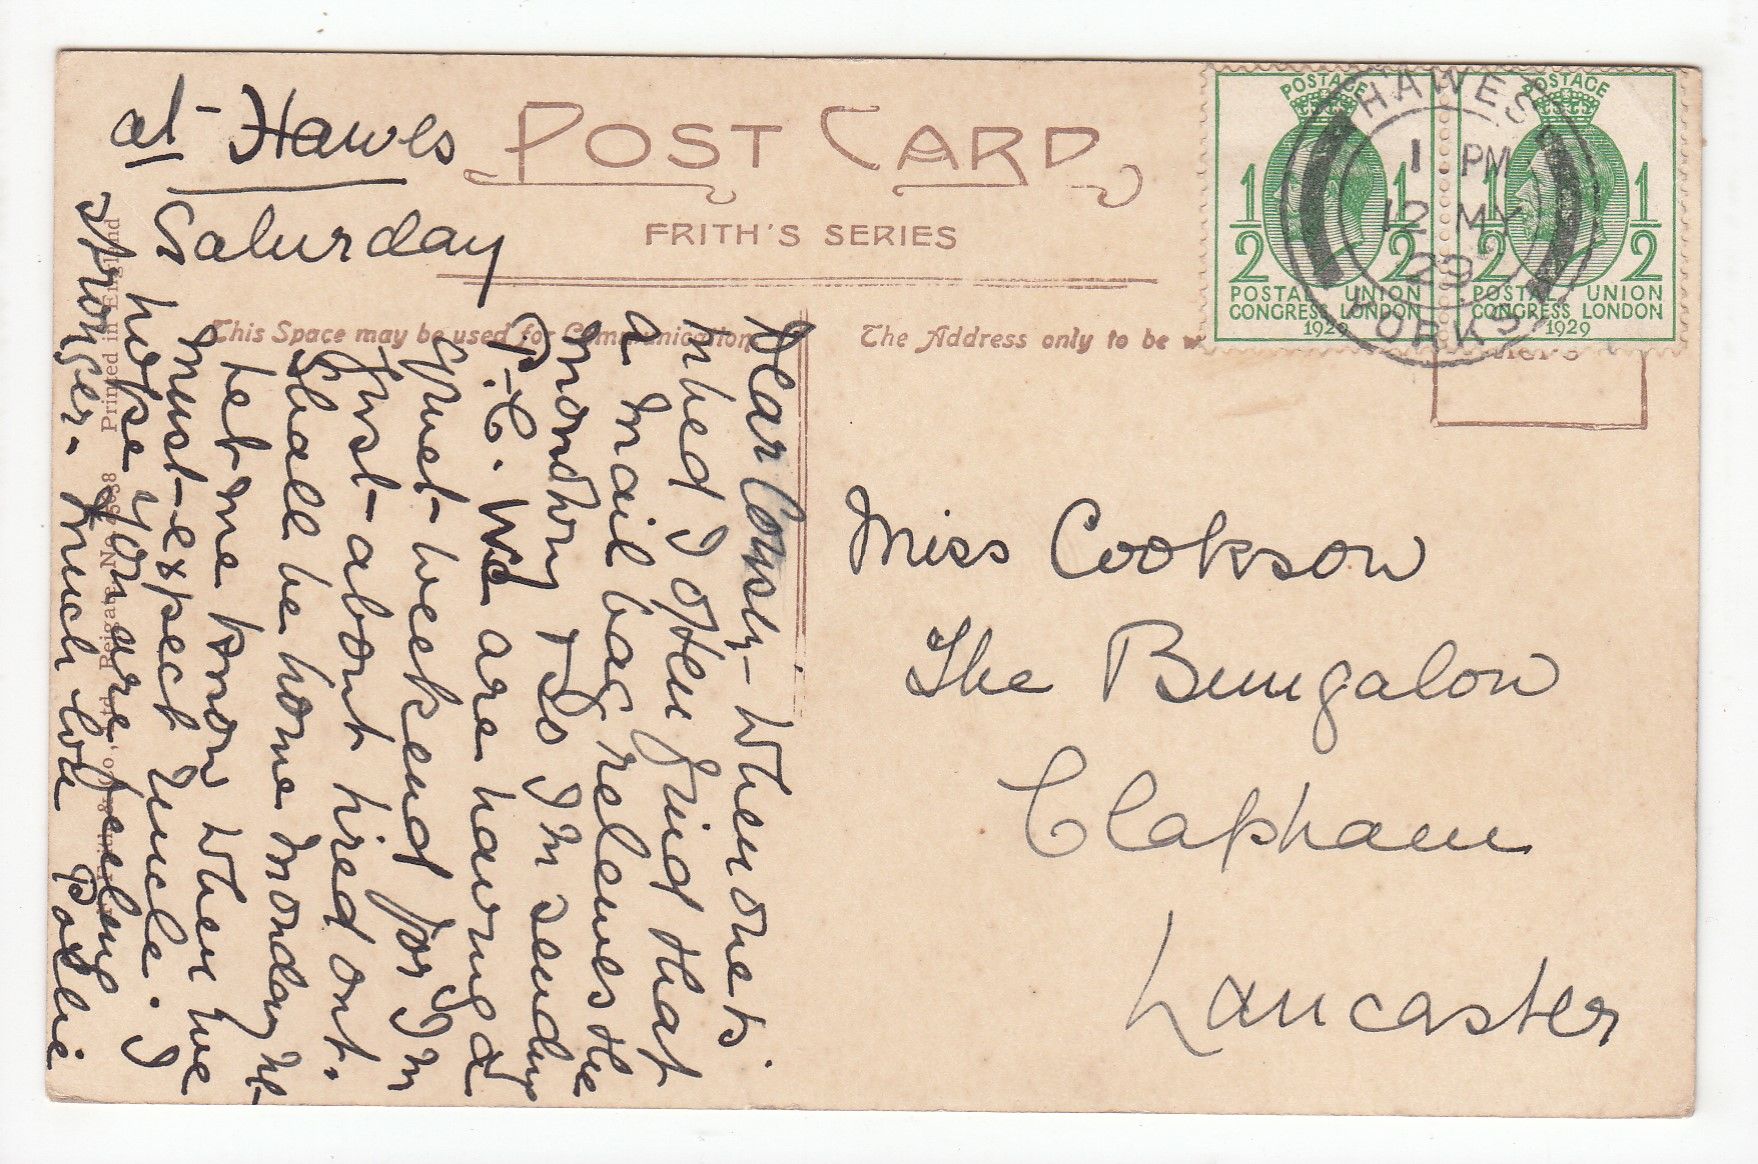 at Hawes
Saturday
POST CARD
FRITH'S SERIES
This Space may be used for Communication
The Address only to be
HAWES
1 PM
12 MY
29
YORKS
POSTAGE
1/2 1/2
POSTAL UNION
CONGRESS LONDON
1929
POSTAGE
1/2 1/2
POSTAL UNION
CONGRESS LONDON
1929
Miss Cookson
The Bungalow
Clapham
Lancaster
Dear - When one is
in bed I often find that
a mail bag relieves the
monotony & so I'm sending
P.C. We are having a
quiet weekend for I'm
just about tired out.
Shall be home Monday
let me know when we
must expect Uncle. I
hope you are feeling
stronger. Much love Pollie
Printed in England
Reigate. No